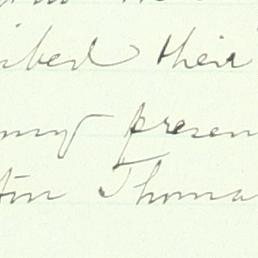 ibed their
my presen
ton Thoma